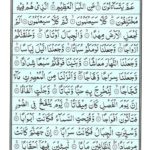 عَمَّ يَتَسَاءَلُونَ عَنِ النَّبَإِ الْعَظِيمِ الَّذِي هُمْ فِيهِ
مُخْتَلِفُونَ كَلَّا سَيَعْلَمُونَ ثُمَّ كَلَّا سَيَعْلَمُونَ أَلَمْ
نَجْعَلِ الْأَرْضَ مِهَادًا وَالْجِبَالَ أَوْتَادًا وَخَلَقْنَاكُمْ
أَزْوَاجًا وَجَعَلْنَا نَوْمَكُمْ سُبَاتًا وَجَعَلْنَا اللَّيْلَ لِبَاسًا
وَجَعَلْنَا النَّهَارَ مَعَاشًا وَبَنَيْنَا فَوْقَكُمْ سَبْعًا شِدَادًا
وَجَعَلْنَا سِرَاجًا وَهَّاجًا وَأَنْزَلْنَا مِنَ الْمُعْصِرَاتِ مَاءً
ثَجَّاجًا لِنُخْرِجَ بِهِ حَبًّا وَنَبَاتًا وَجَنَّاتٍ أَلْفَافًا
إِنَّ يَوْمَ الْفَصْلِ كَانَ مِيقَاتًا يَوْمَ يُنْفَخُ فِي الصُّورِ
فَتَأْتُونَ أَفْوَاجًا وَفُتِحَتِ السَّمَاءُ فَكَانَتْ أَبْوَابًا
وَسُيِّرَتِ الْجِبَالُ فَكَانَتْ سَرَابًا إِنَّ جَهَنَّمَ كَانَتْ